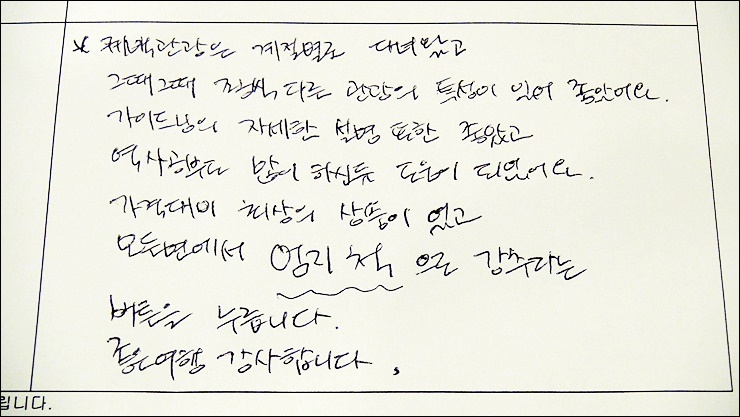 * 체험관광은 계절별로 다녀왔고
그때그때 짬짝다른 관광의 특성이 있어 좋았어요.
가이드님의 자세한 설명 또한 좋았고
역사공부도 많이 하신듯 도움이 되었어요.
가격대비 최상의 상품이 었고
모든면에서 엄지척 으로 강추라는
버튼을 누릅니다.
좋은여행 감사합니다.
립니다.